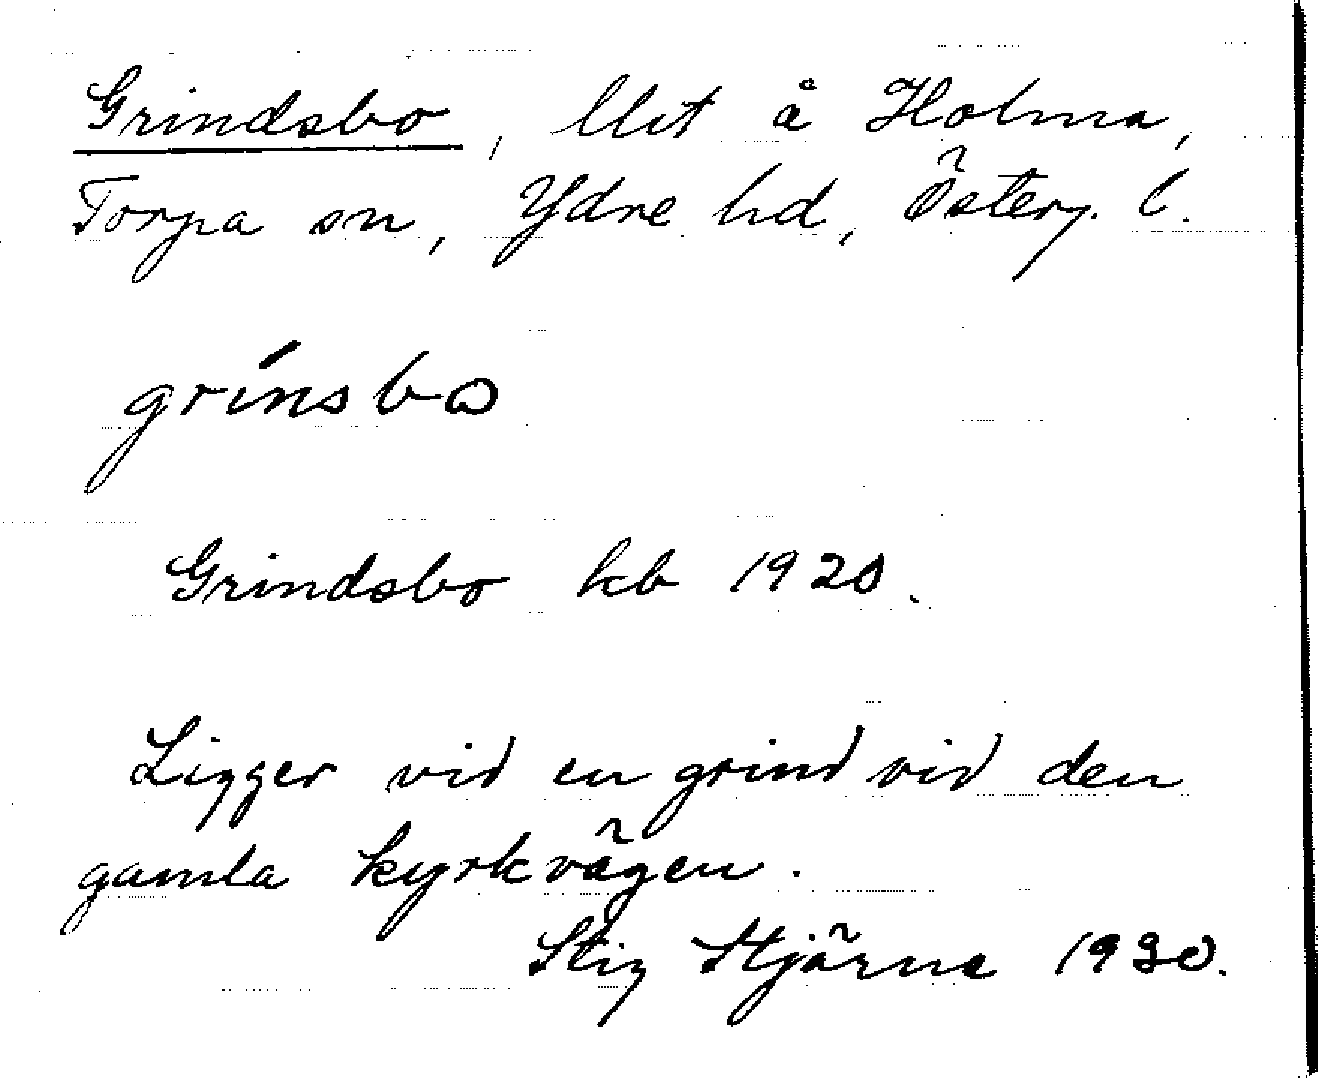 Grindsbo, llit å Holma,
Torpa sn, Ydre hd, Österg. l.
grínsbo
Grindsbo kb 1920.
Ligger vid en grind vid den
gamla kyrkvägen.
Stig Stjärne 1930.